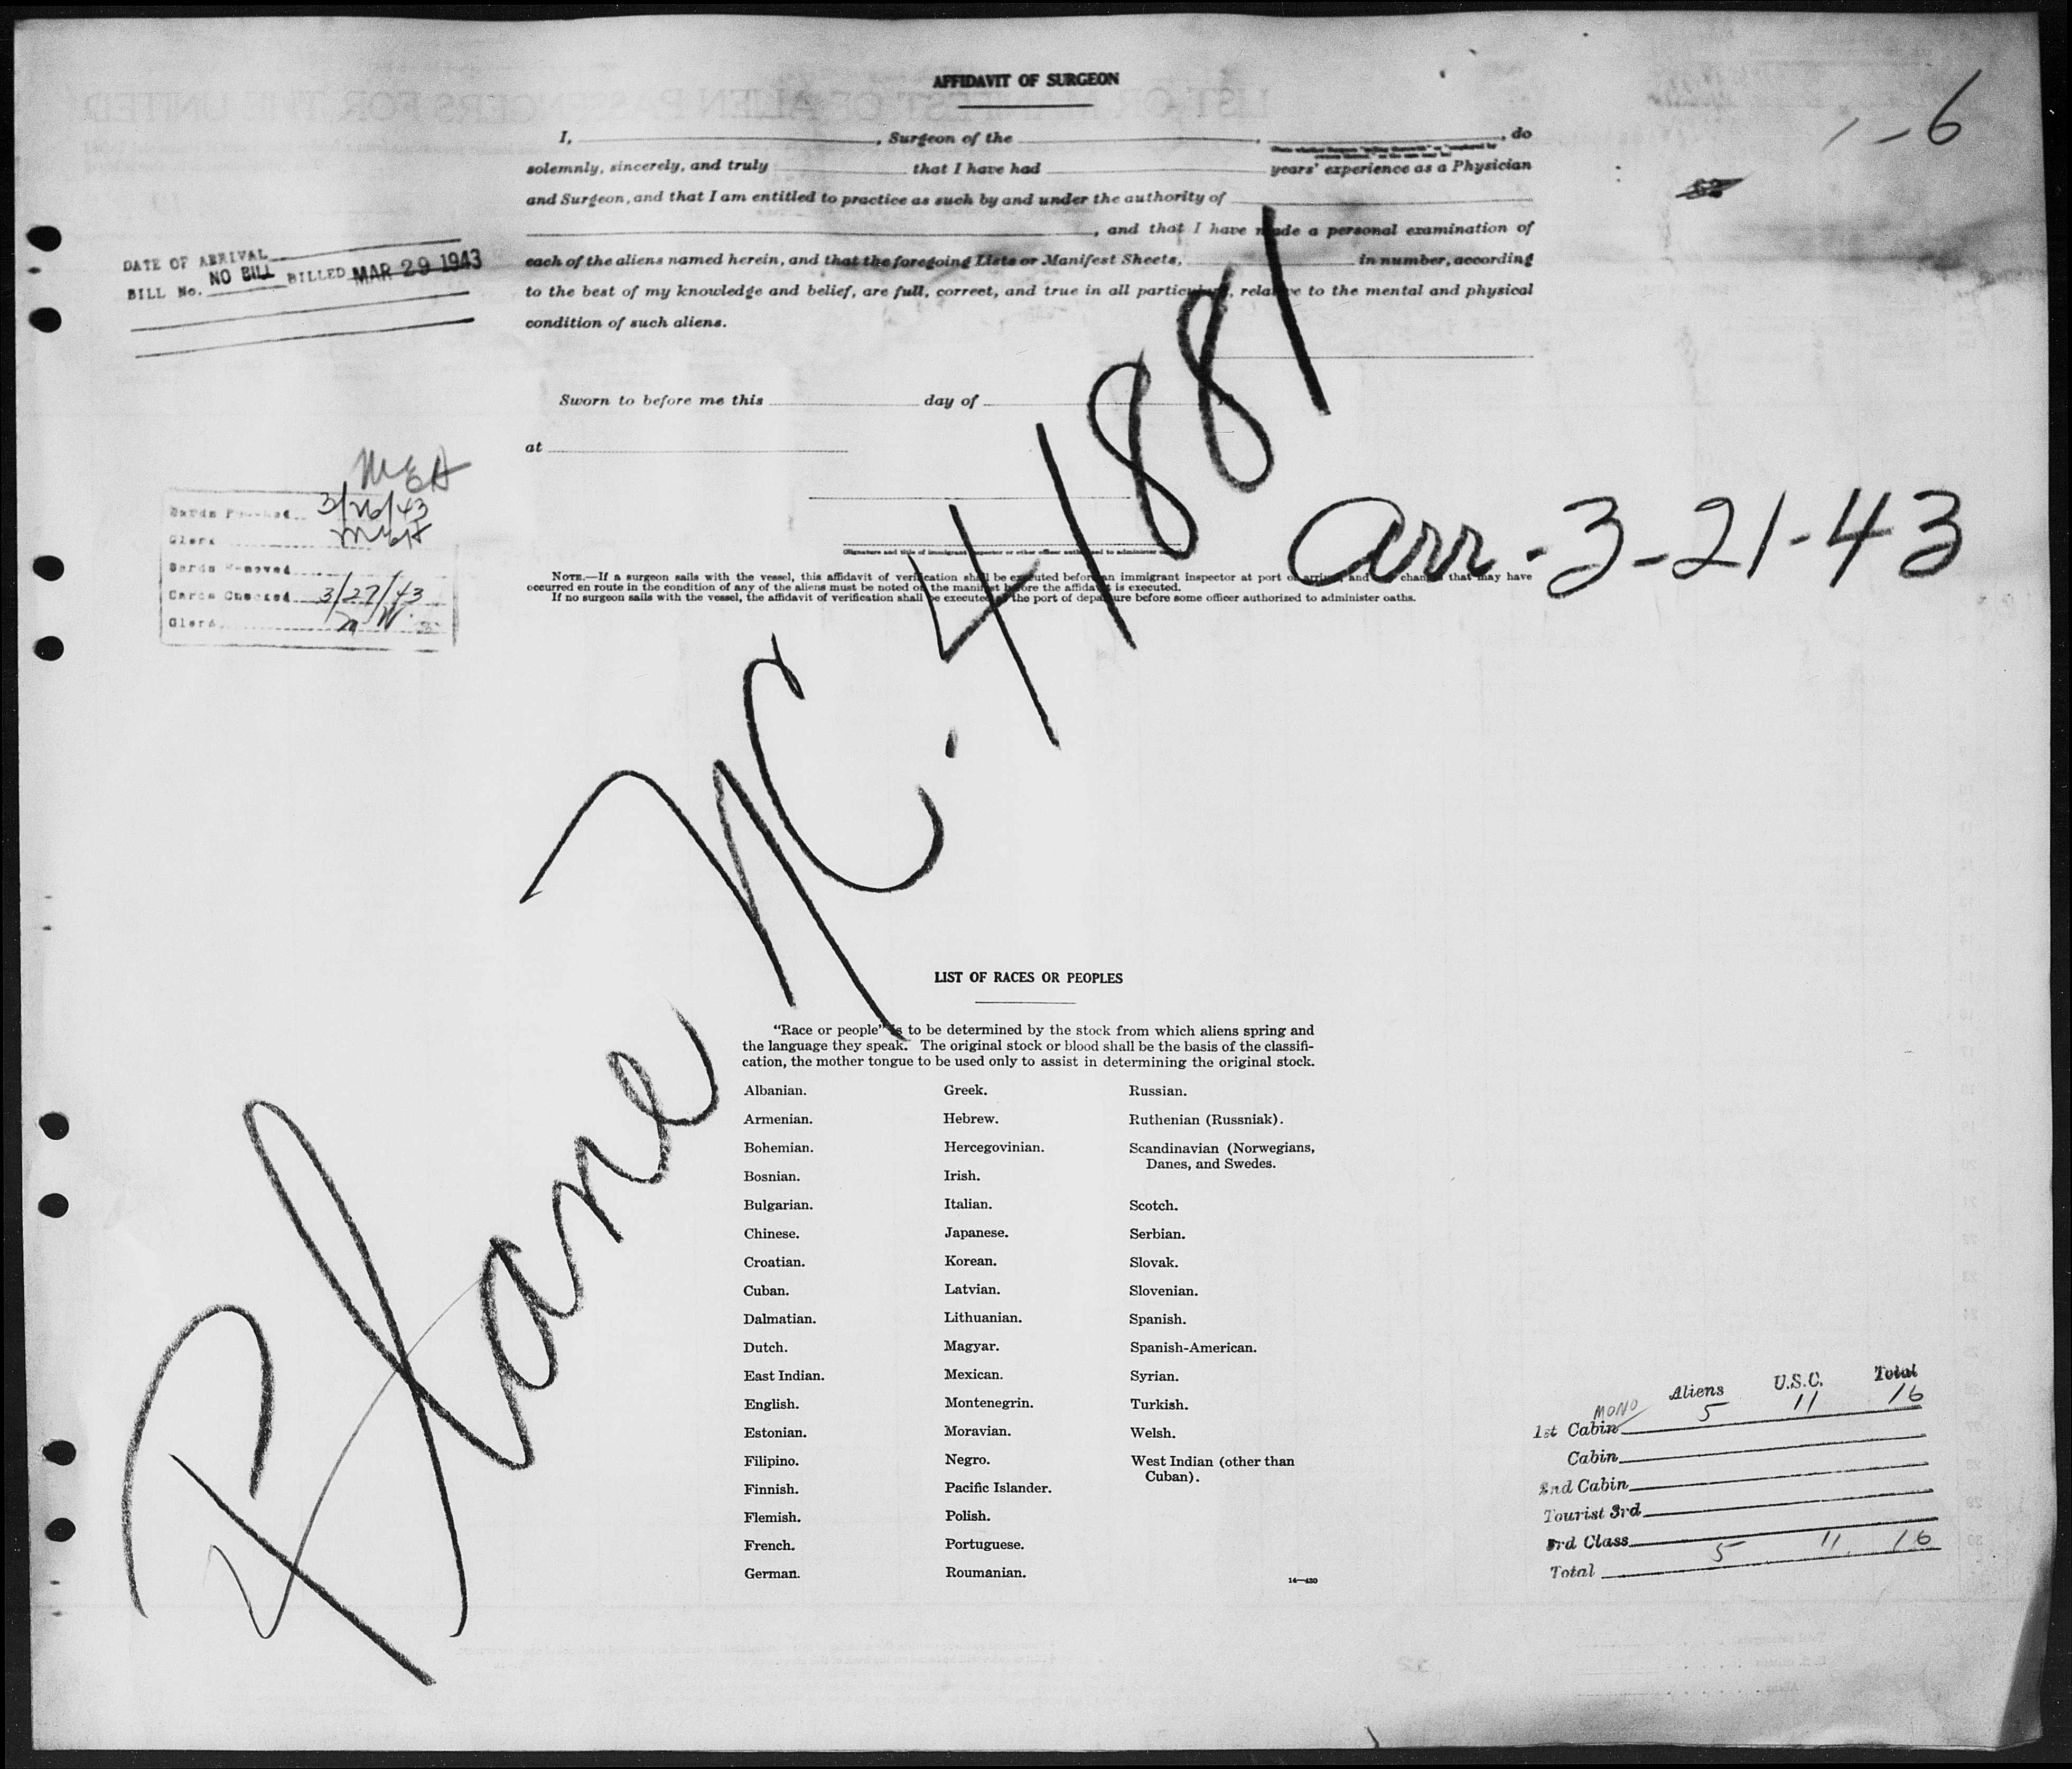 AFFIDAVIT OF SURGEON
1-6
I, , Surgeon of the , , do
solemnly, sincerely, and truly that I have had years' experience as a Physician
and Surgeon, and that I am entitled to practice as such by and under the authority of
, and that I have made a personal examination of
each of the aliens named herein, and that the foregoing Lists or Manifest Sheets, in number, according
to the best of my knowledge and belief, are full, correct, and true in all particulars, relative to the mental and physical
condition of such aliens.
DATE OF ARRIVAL
BILL No. NO BILL BILLED MAR 29 1943
Sworn to before me this day of
at
(Signature and title of immigrant inspector or other officer authorized to administer oaths)
NOTE.—If a surgeon sails with the vessel, this affidavit of verification shall be executed before an immigrant inspector at port of arrival, and any changes that may have
occurred en route in the condition of any of the aliens must be noted on the manifest before the affidavit is executed.
If no surgeon sails with the vessel, the affidavit of verification shall be executed at the port of departure before some officer authorized to administer oaths.
MEH
Cards Punched 3/26/43
Clerk MEH
Cards Removed
Cards Checked 3/27/43
Clerk
Plane NC. 41881
Arr-3-21-43
LIST OF RACES OR PEOPLES
"Race or people" is to be determined by the stock from which aliens spring and
the language they speak. The original stock or blood shall be the basis of the classifi-
cation, the mother tongue to be used only to assist in determining the original stock.
Albanian. Greek. Russian.
Armenian. Hebrew. Ruthenian (Russniak).
Bohemian. Hercegovinian. Scandinavian (Norwegians,
Danes, and Swedes.
Bosnian. Irish.
Bulgarian. Italian. Scotch.
Chinese. Japanese. Serbian.
Croatian. Korean. Slovak.
Cuban. Latvian. Slovenian.
Dalmatian. Lithuanian. Spanish.
Dutch. Magyar. Spanish-American.
East Indian. Mexican. Syrian.
English. Montenegrin. Turkish.
Estonian. Moravian. Welsh.
Filipino. Negro. West Indian (other than
Cuban).
Finnish. Pacific Islander.
Flemish. Polish.
French. Portuguese.
German. Roumanian.
14—430
Aliens U.S.C. Total
MONO
1st Cabin 5 11 16
Cabin
2nd Cabin
Tourist 3rd
3rd Class
Total 5 11 16